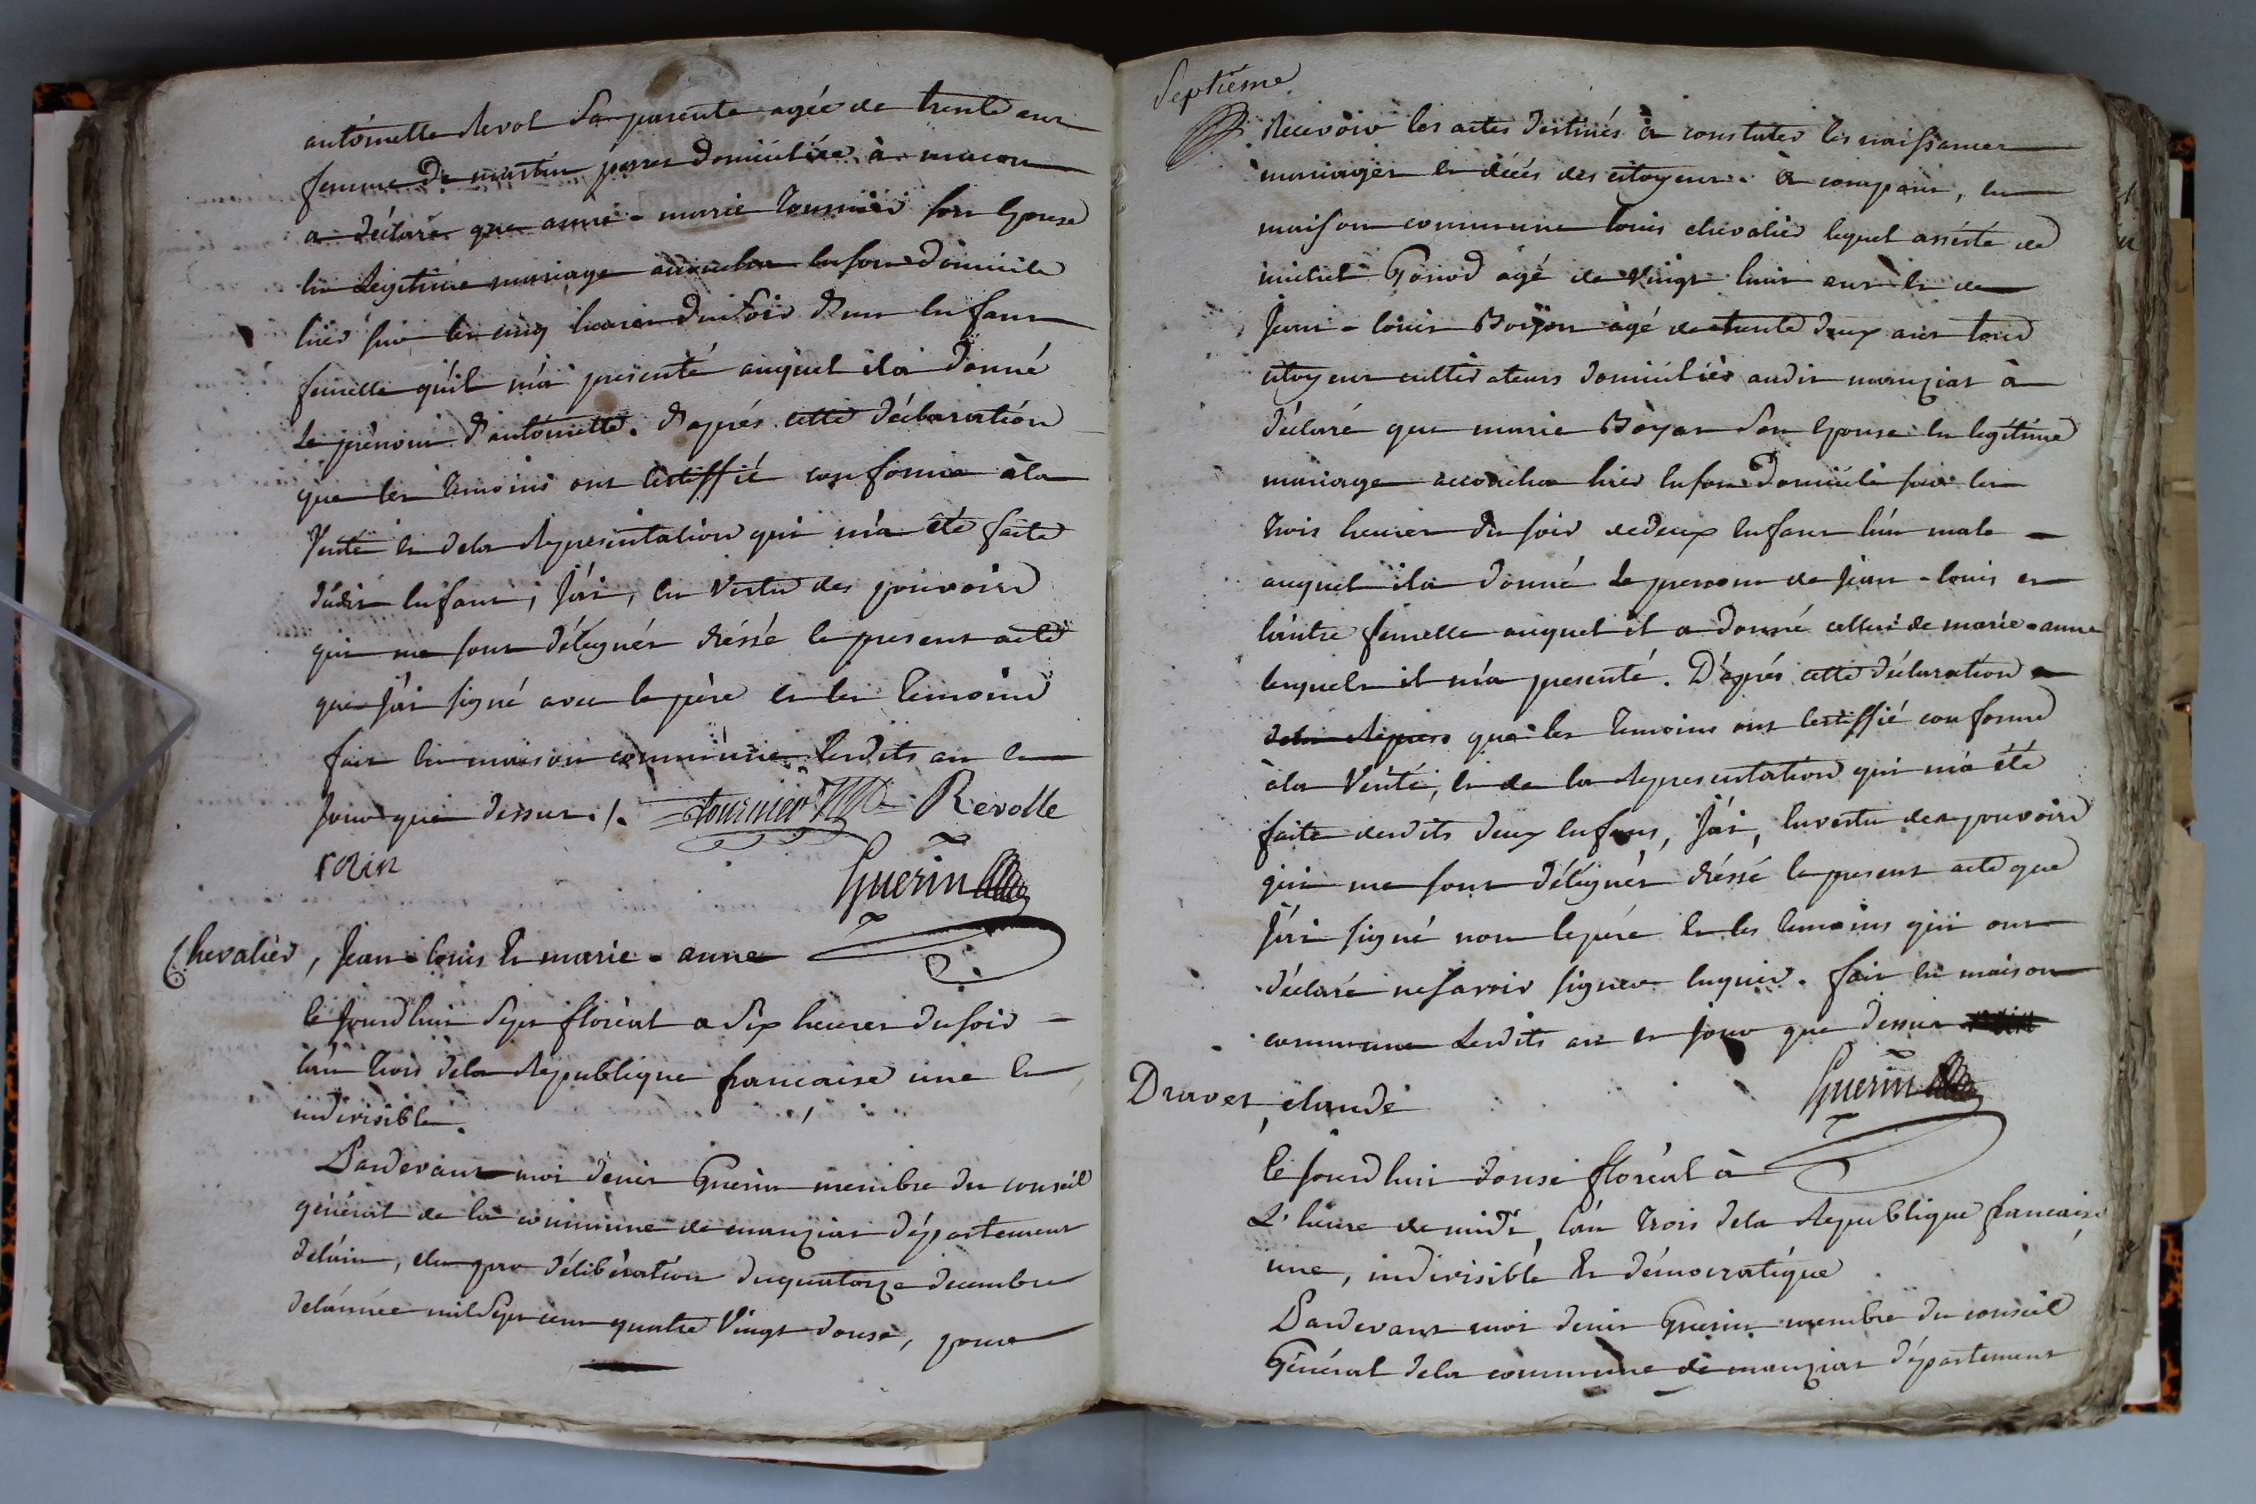 antoinette Revol Sa parente agée de trente ans
femme de martin perret domiciliée à macon
a déclaré que anne-marie Tournier son Epouse
En Legitime mariage accoucha En son Domicile
hier sur les cinq heures du Soir D'un Enfant
femelle qu'il m'a presenté auquel il a Donné
Le prénom D'antoinette. D'après cette Déclaration
que les Temoins ont Certiffié conforme à la
Verité Et de la Representation qui m'a été faite
dudit Enfant, J'ai, En Vertu des pouvoirs
qui me sont délégués dréssé le present acte
que J'ai signé avec le père Et les Temoins
fait En maison commune Lesdits an Et
Jour que dessus ./. Tournier Revolle
Guerin
Chevalier, Jean-Louis Et marie-anne
Ce Jourd'hui Sept floréal a Six heures du soir
L'an Trois de la Republique francaise une Et
indivisible.
Pardevant moi denis Guerin membre du conseil
général de la commune de manziat département
de l'ain, élu par délibération du quatorze decembre
de l'année mil Sept cent quatre Vingt douse, pour
Septième
Recevoir les actes destinés à constater les naissances
mariages Et décés des citoyens. a comparu, En
maison commune Louis chevalier lequel assisté de
michel Gonod agé de Vingt huit ans Et de
Jean-Louis Boyon agé de trente deux ans tous
citoyens cultivateurs domiciliés audit manziat à
Déclaré que marie Boyat Son Epouse En legitime
mariage accoucha hier En son Domicile sur les
Trois heures du soir de deux Enfans L'un male
auquel il a Donné Le prenom de Jean-Louis et
L'autre femelle auquel il a donné celui de marie-anne
Lesquels il m'a presenté. D'aprés cette Déclaration et
de la Repres que les Temoins ont Certiffié conforme
à la Verité, Et de la Representation qui m'a été
faite desdits deux Enfans, J'ai, En vertu des pouvoirs
qui me sont délégués dréssé le present acte que
J'ai signé non le pére Et les Temoins qui ont
déclaré ne savoir signer Enquis. fait En maison
commune Lesdits an et jour que dessus
Guerin
Druvet, claude
Ce Jourd'hui douse floréal à
L'heure de midi, L'an Trois de la Republique francaise
une, indivisible Et démocratique
Pardevant moi denis Guerin membre du conseil
Général de la commune de manziat département